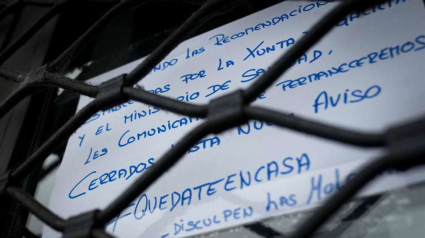 LAS RECOMENDACION
POR LA XUNTA
Y EL MINISTERIO DE SANIDAD,
LES COMUNICA PERMANECEREMOS
CERRADOS HASTA NUEVO AVISO
#QUEDATEENCASA
DISCULPEN LAS MOL